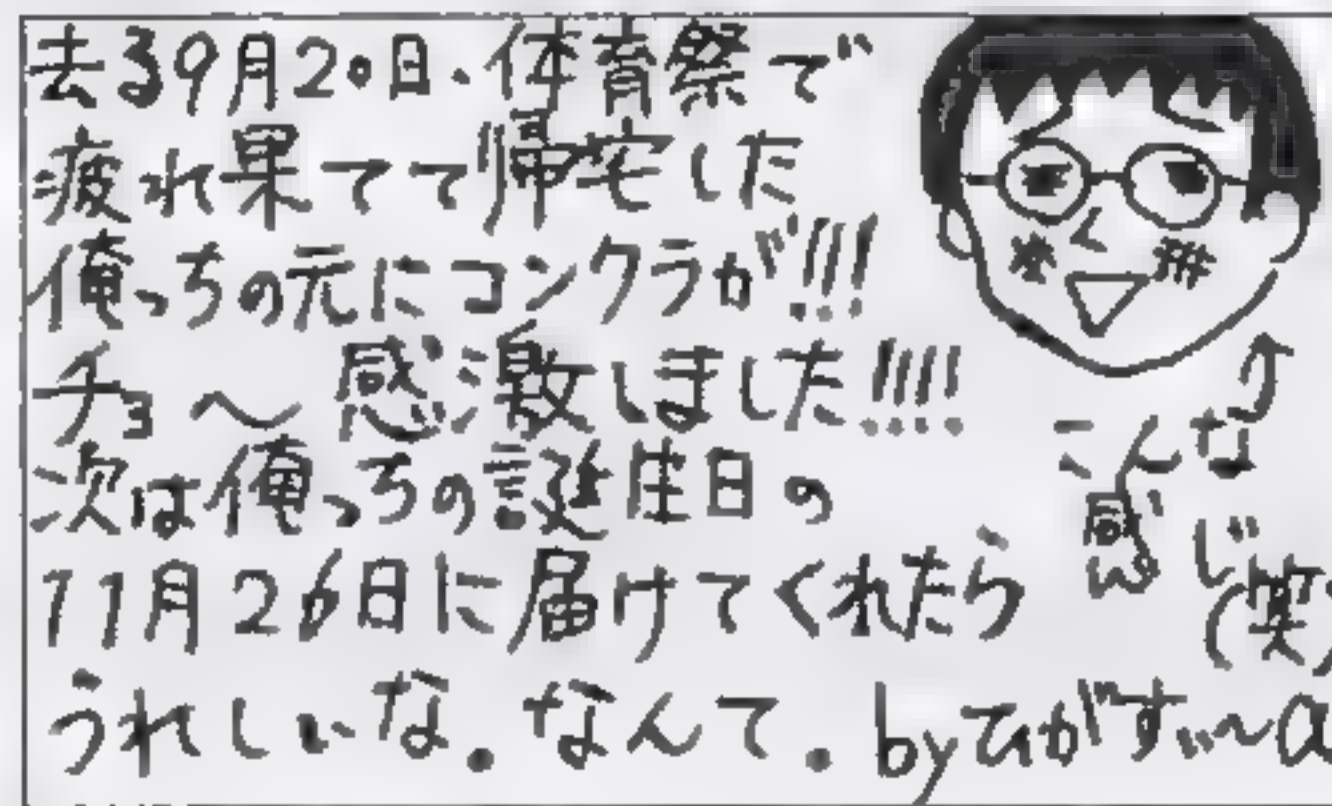 去る9月20日.体育祭で
疲れ果てて帰宅した
俺っちの元にコンクラが!!!
チョ〜感激しました!!!!
次は俺っちの誕生日の
11月26日に届けてくれたら
うれしいな。なんて。byひがすぃ〜a
こんな
感じ
(笑)